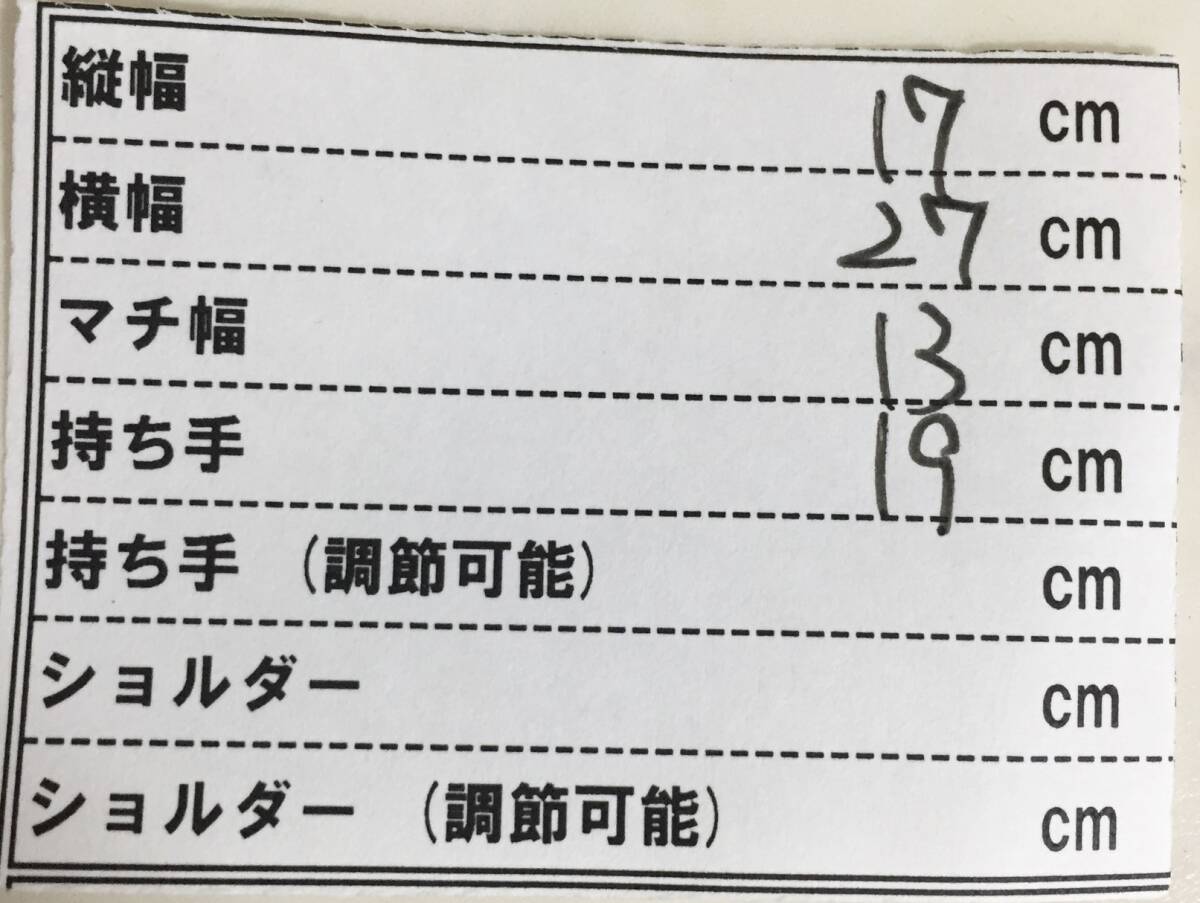 縦幅 17 cm
横幅 27 cm
マチ幅 13 cm
持ち手 19 cm
持ち手 (調節可能) cm
ショルダー cm
ショルダー (調節可能) cm